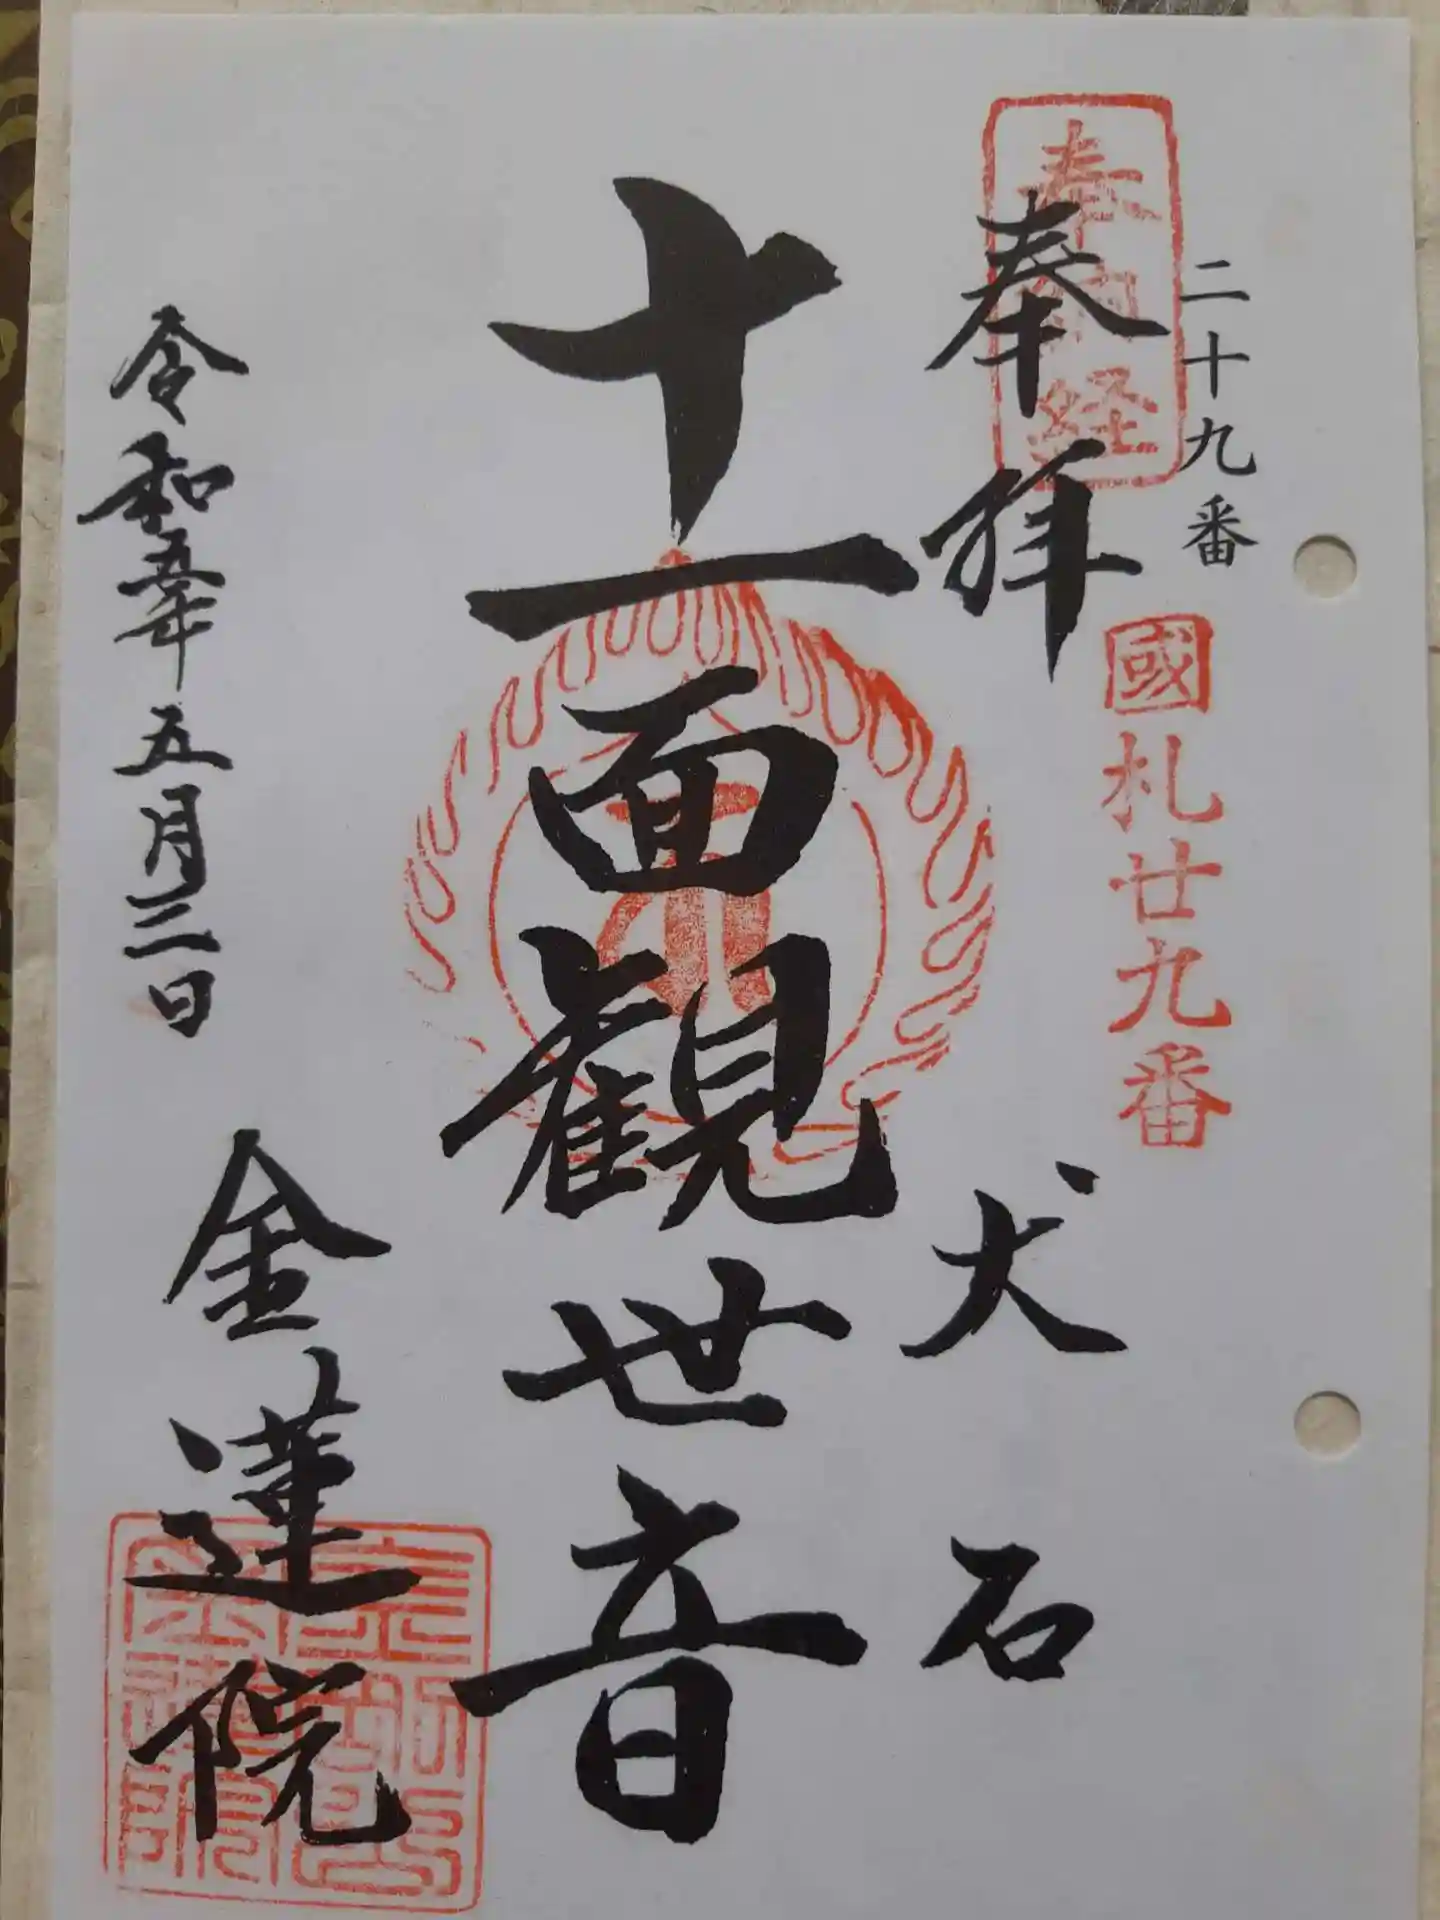 二十九番
奉納経
奉拝
國札廿九番
犬石
十一面観世音
令和五年五月三日
金蓮院